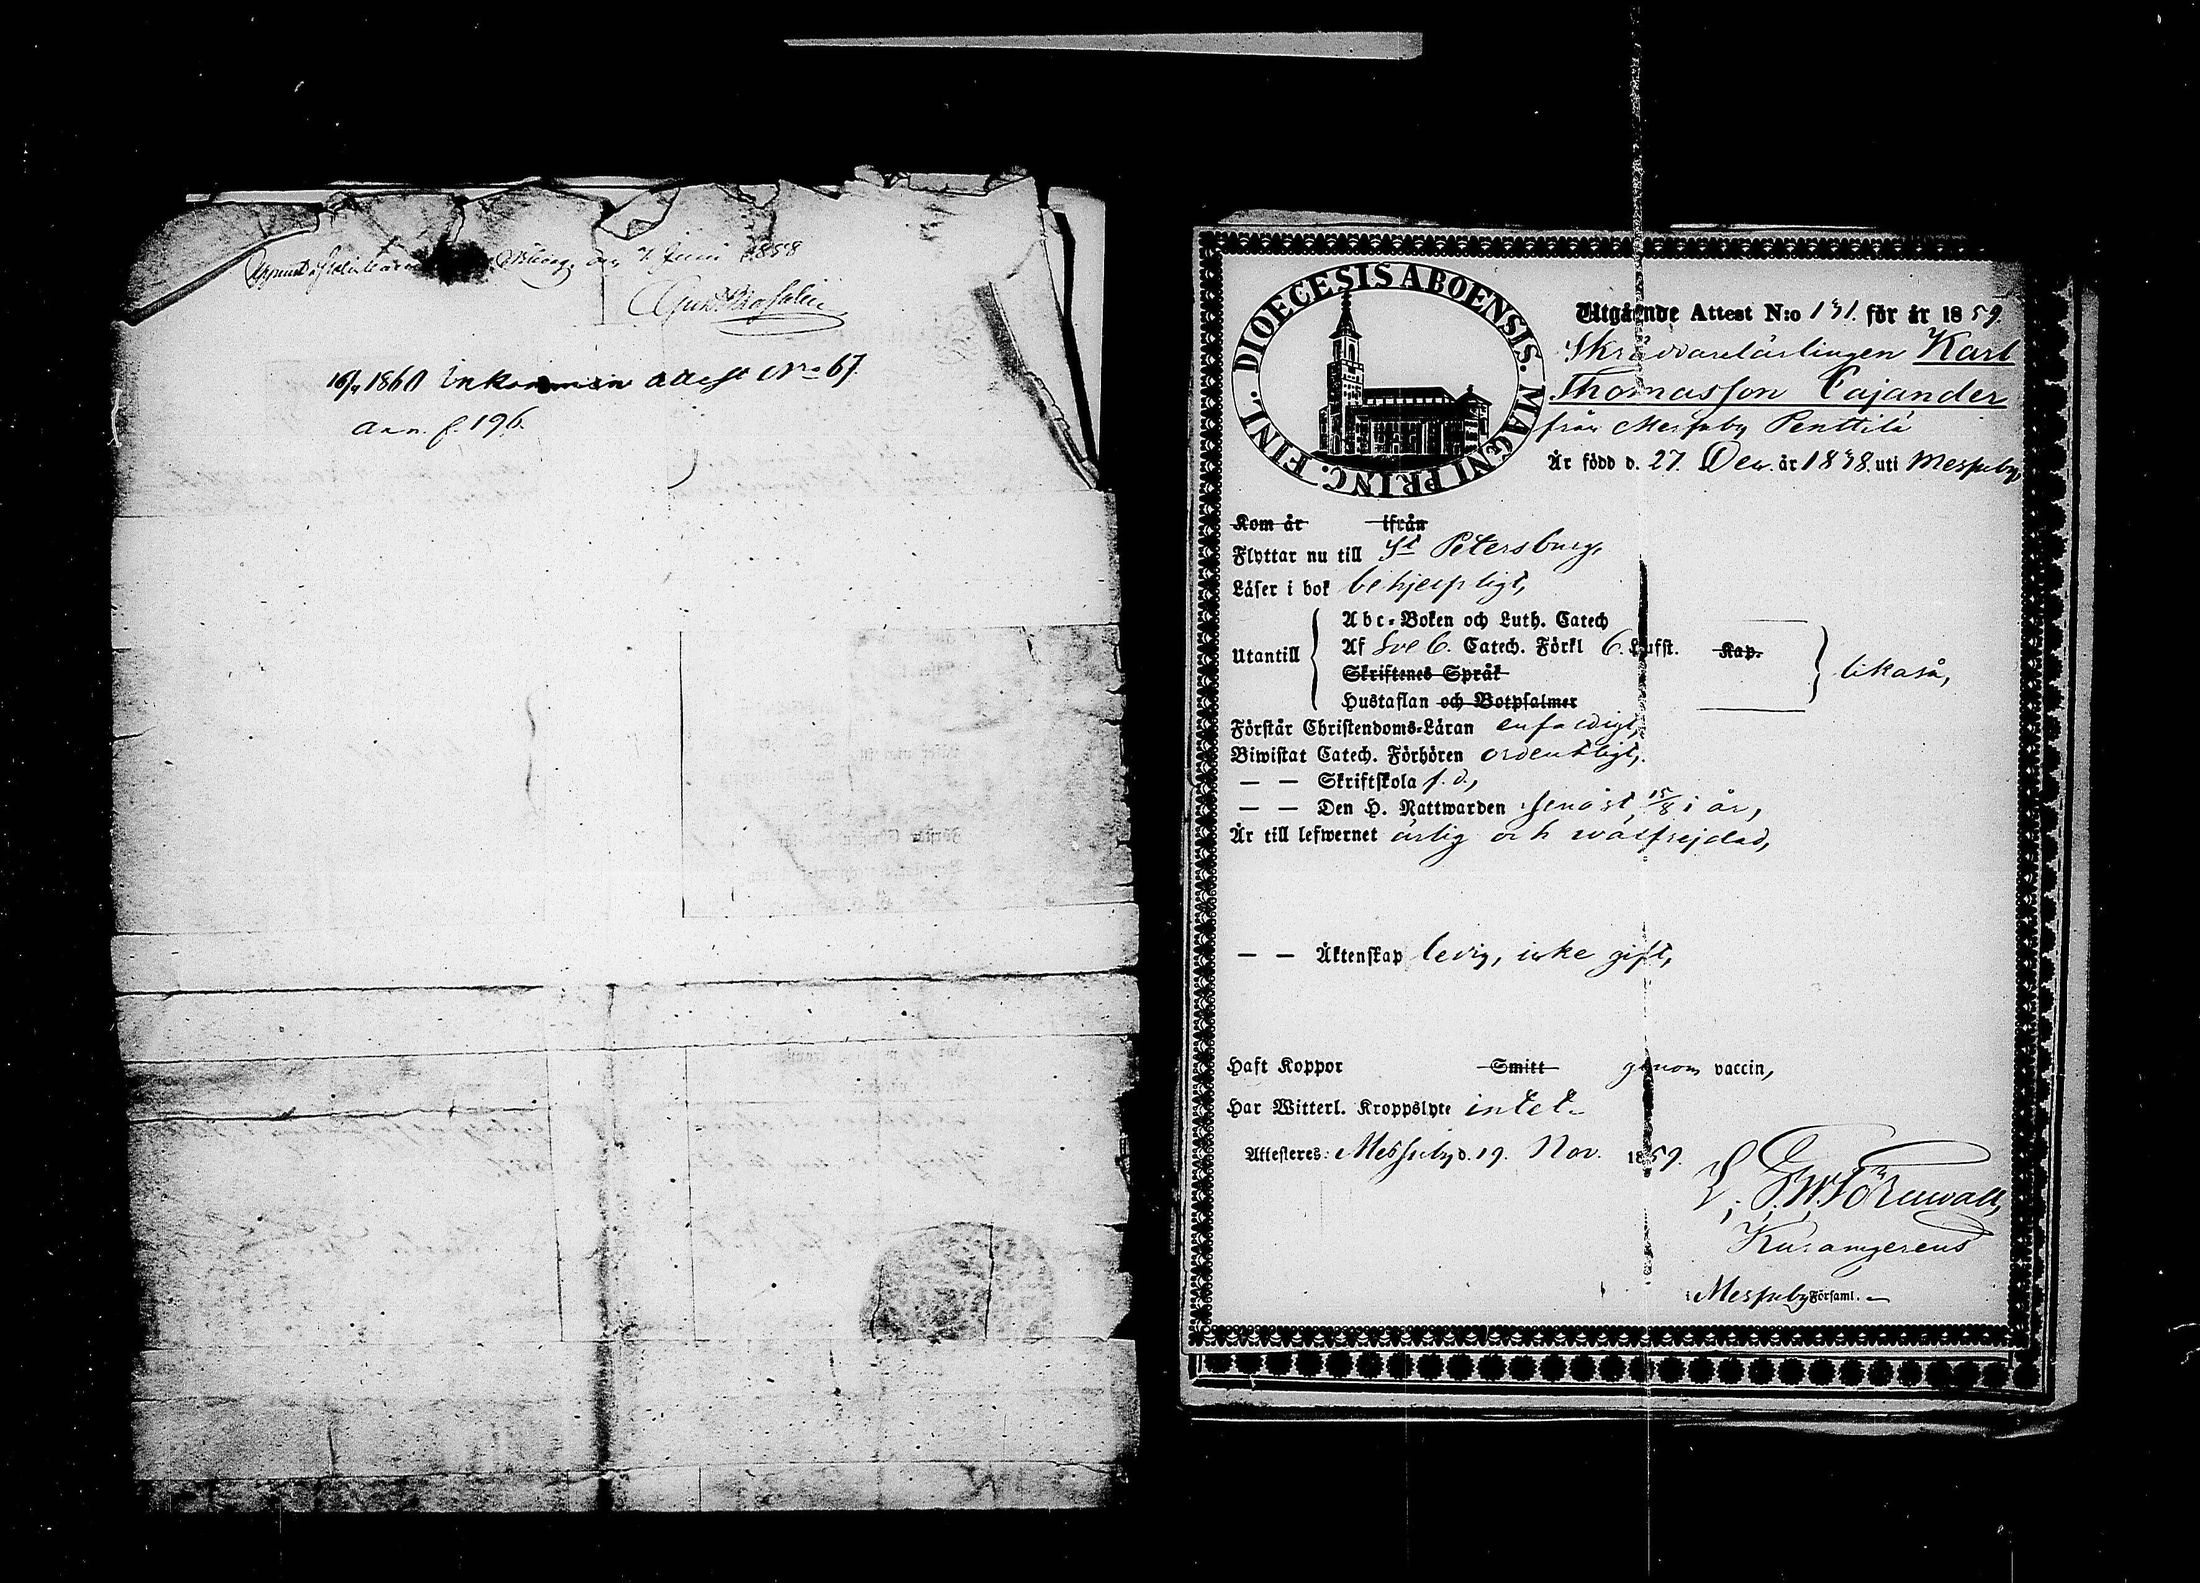 d. 7 Juni 1858
1860 Inkommen attest No 67.
ann. f. 196.
DIOECESIS ABOENSIS. MAGNI PRINC. FINL.
Utgående Attest N:o 131. för år 1859.
Skräddarelärlingen Karl
Thomasson Cajander
från Messuby Penttilä
Är född d. 27. Dec. år 1838. uti Messuby,
Kom år ifrån
Flyttar nu till St Petersburg,
Läser i bok behjelpligt,
Utantill
Abc-Boken och Luth. Catech
Af Sveb. Catech. Förkl 6. Lufst. Kap.
Skriftenes Språk
Hustaflan och Botpsalmer
likaså,
Förstår Christendoms-Läran enfaldigt,
Biwistat Catech. Förhören ordentligt,
— — Skriftskola f. d.,
— — Den H. Nattwarden senast 15/8 i år,
Är till lefwernet ärlig och wälfrejdad,
— — Äktenskap ledig, icke gift,
Haft Koppor Smitt genom vaccin,
Har Witterl. Kroppslyte intet.
Attesteres: Messuby d. 19. Nov. 1859.
Messuby Församl.